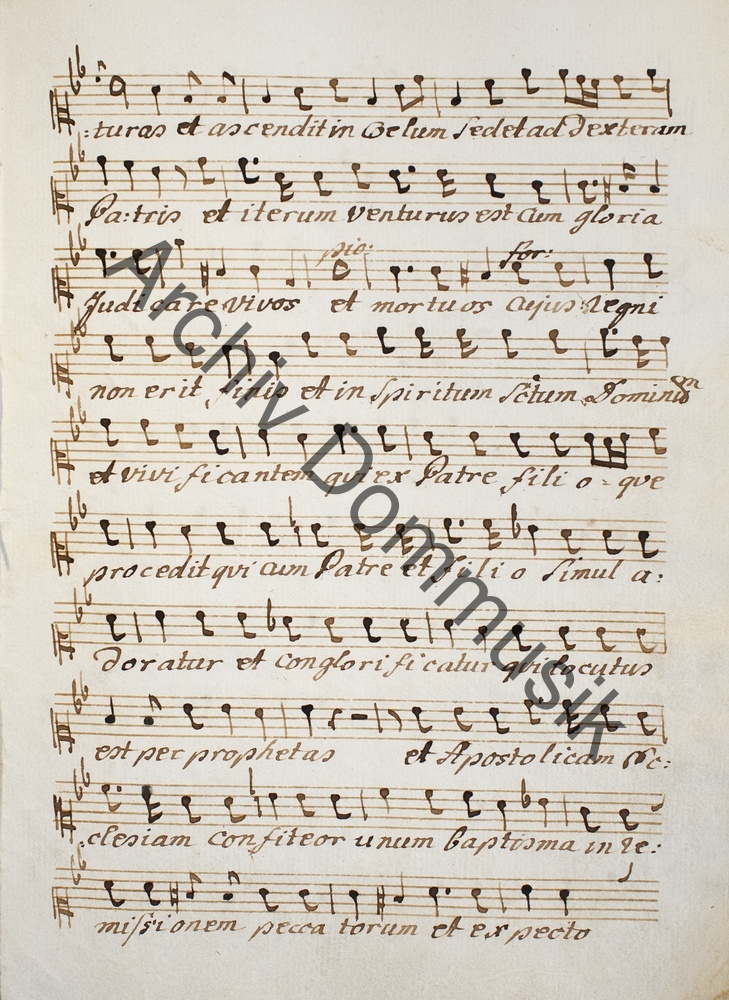 :turas et ascendit in Coelum sedet ad dexteram
Pa:tris et iterum venturus est Cum gloria
pio: for:
Judicare vivos et mortuos Cujus regni
non erit finis et in Spiritum Sctum Dominum
et vivificantem qui ex Patre filio = que
procedit qui cum Patre et filio simul a:
doratur et conglorificatur qui locutus
est per prophetas et Apostolicam Ec:
:clesiam Confiteor unum baptisma in re:
missionem peccatorum et expecto
Archiv Dommusik